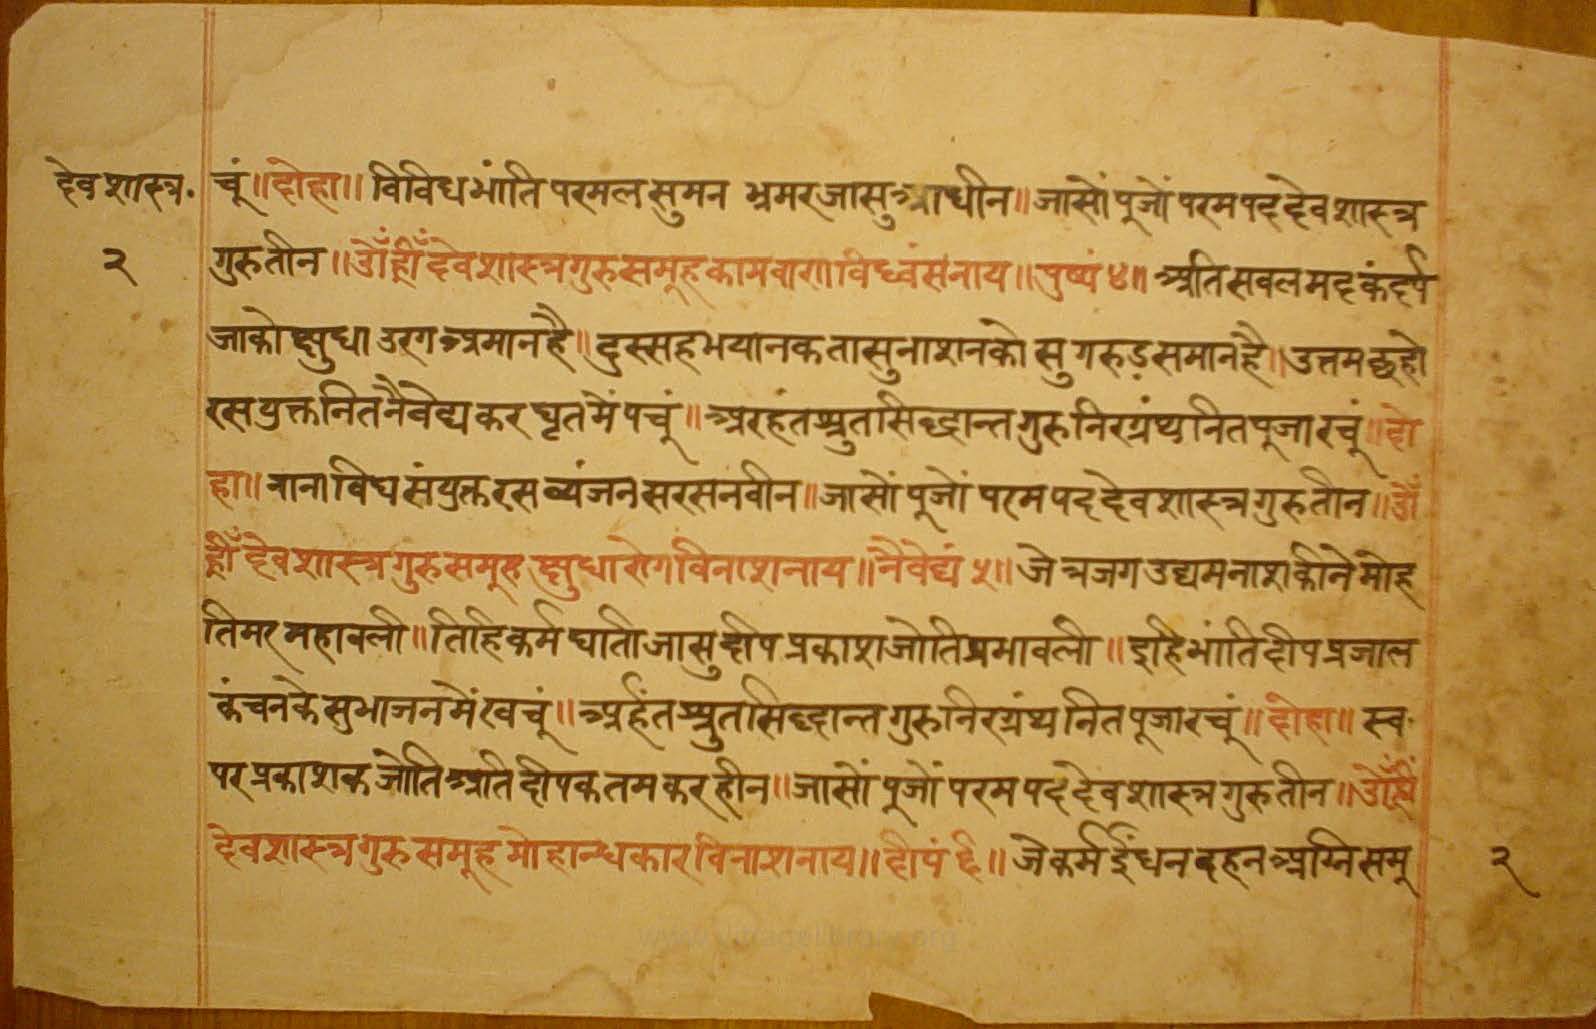 देवशास्त्र॰
२
चूं॥दोहा॥ विविध भांति परमल सुमन भ्रमर जासु आधीन॥ जासों पूजों परमपद देव शास्त्र
गुरु तीन॥ ओँ ह्रीँ देवशास्त्रगुरुसमूह कामवाण विध्वंसनाय॥ पुष्पं ४॥ अति सवल मद कंदर्प
जाको क्षुधा उरग अमान है॥ दुस्सह भयानक तासु नाशन को सु गरुड़ समान है॥ उत्तम छहो
रस युक्त नित नैवेद्य कर घृत में पचूं॥ अरहंत श्रुत सिद्धान्त गुरु निरग्रंथ नित पूजा रचूं॥ दो
हा॥ नाना विध संयुक्त रस व्यंजन सरस नवीन॥ जासों पूजों परम पद देव शास्त्र गुरु तीन॥ ओँ
ह्रीँ देवशास्त्रगुरुसमूह क्षुधारोगविनाशनाय॥ नैवेद्यं ५॥ जे त्रजग उद्यम नाश कीने मोह
तिमर महावली॥ तिहि कर्म घाती जासु दीप प्रकाश जोति प्रभावली॥ इहि भांति दीप प्रजाल
कंचन के सुभाजन में खचूं॥ अर्हंत श्रुत सिद्धान्त गुरु निरग्रंथ नित पूजा रचूं॥ दोहा॥ स्व॰
पर प्रकाशक जोति अति दीपक तम कर हीन॥ जासों पूजों परम पद देव शास्त्र गुरु तीन॥ ओँ ह्रीँ
देवशास्त्रगुरुसमूह मोहान्धकारविनाशनाय॥ दीपं ६॥ जे कर्म ईंधन दहन अग्नि समू
२